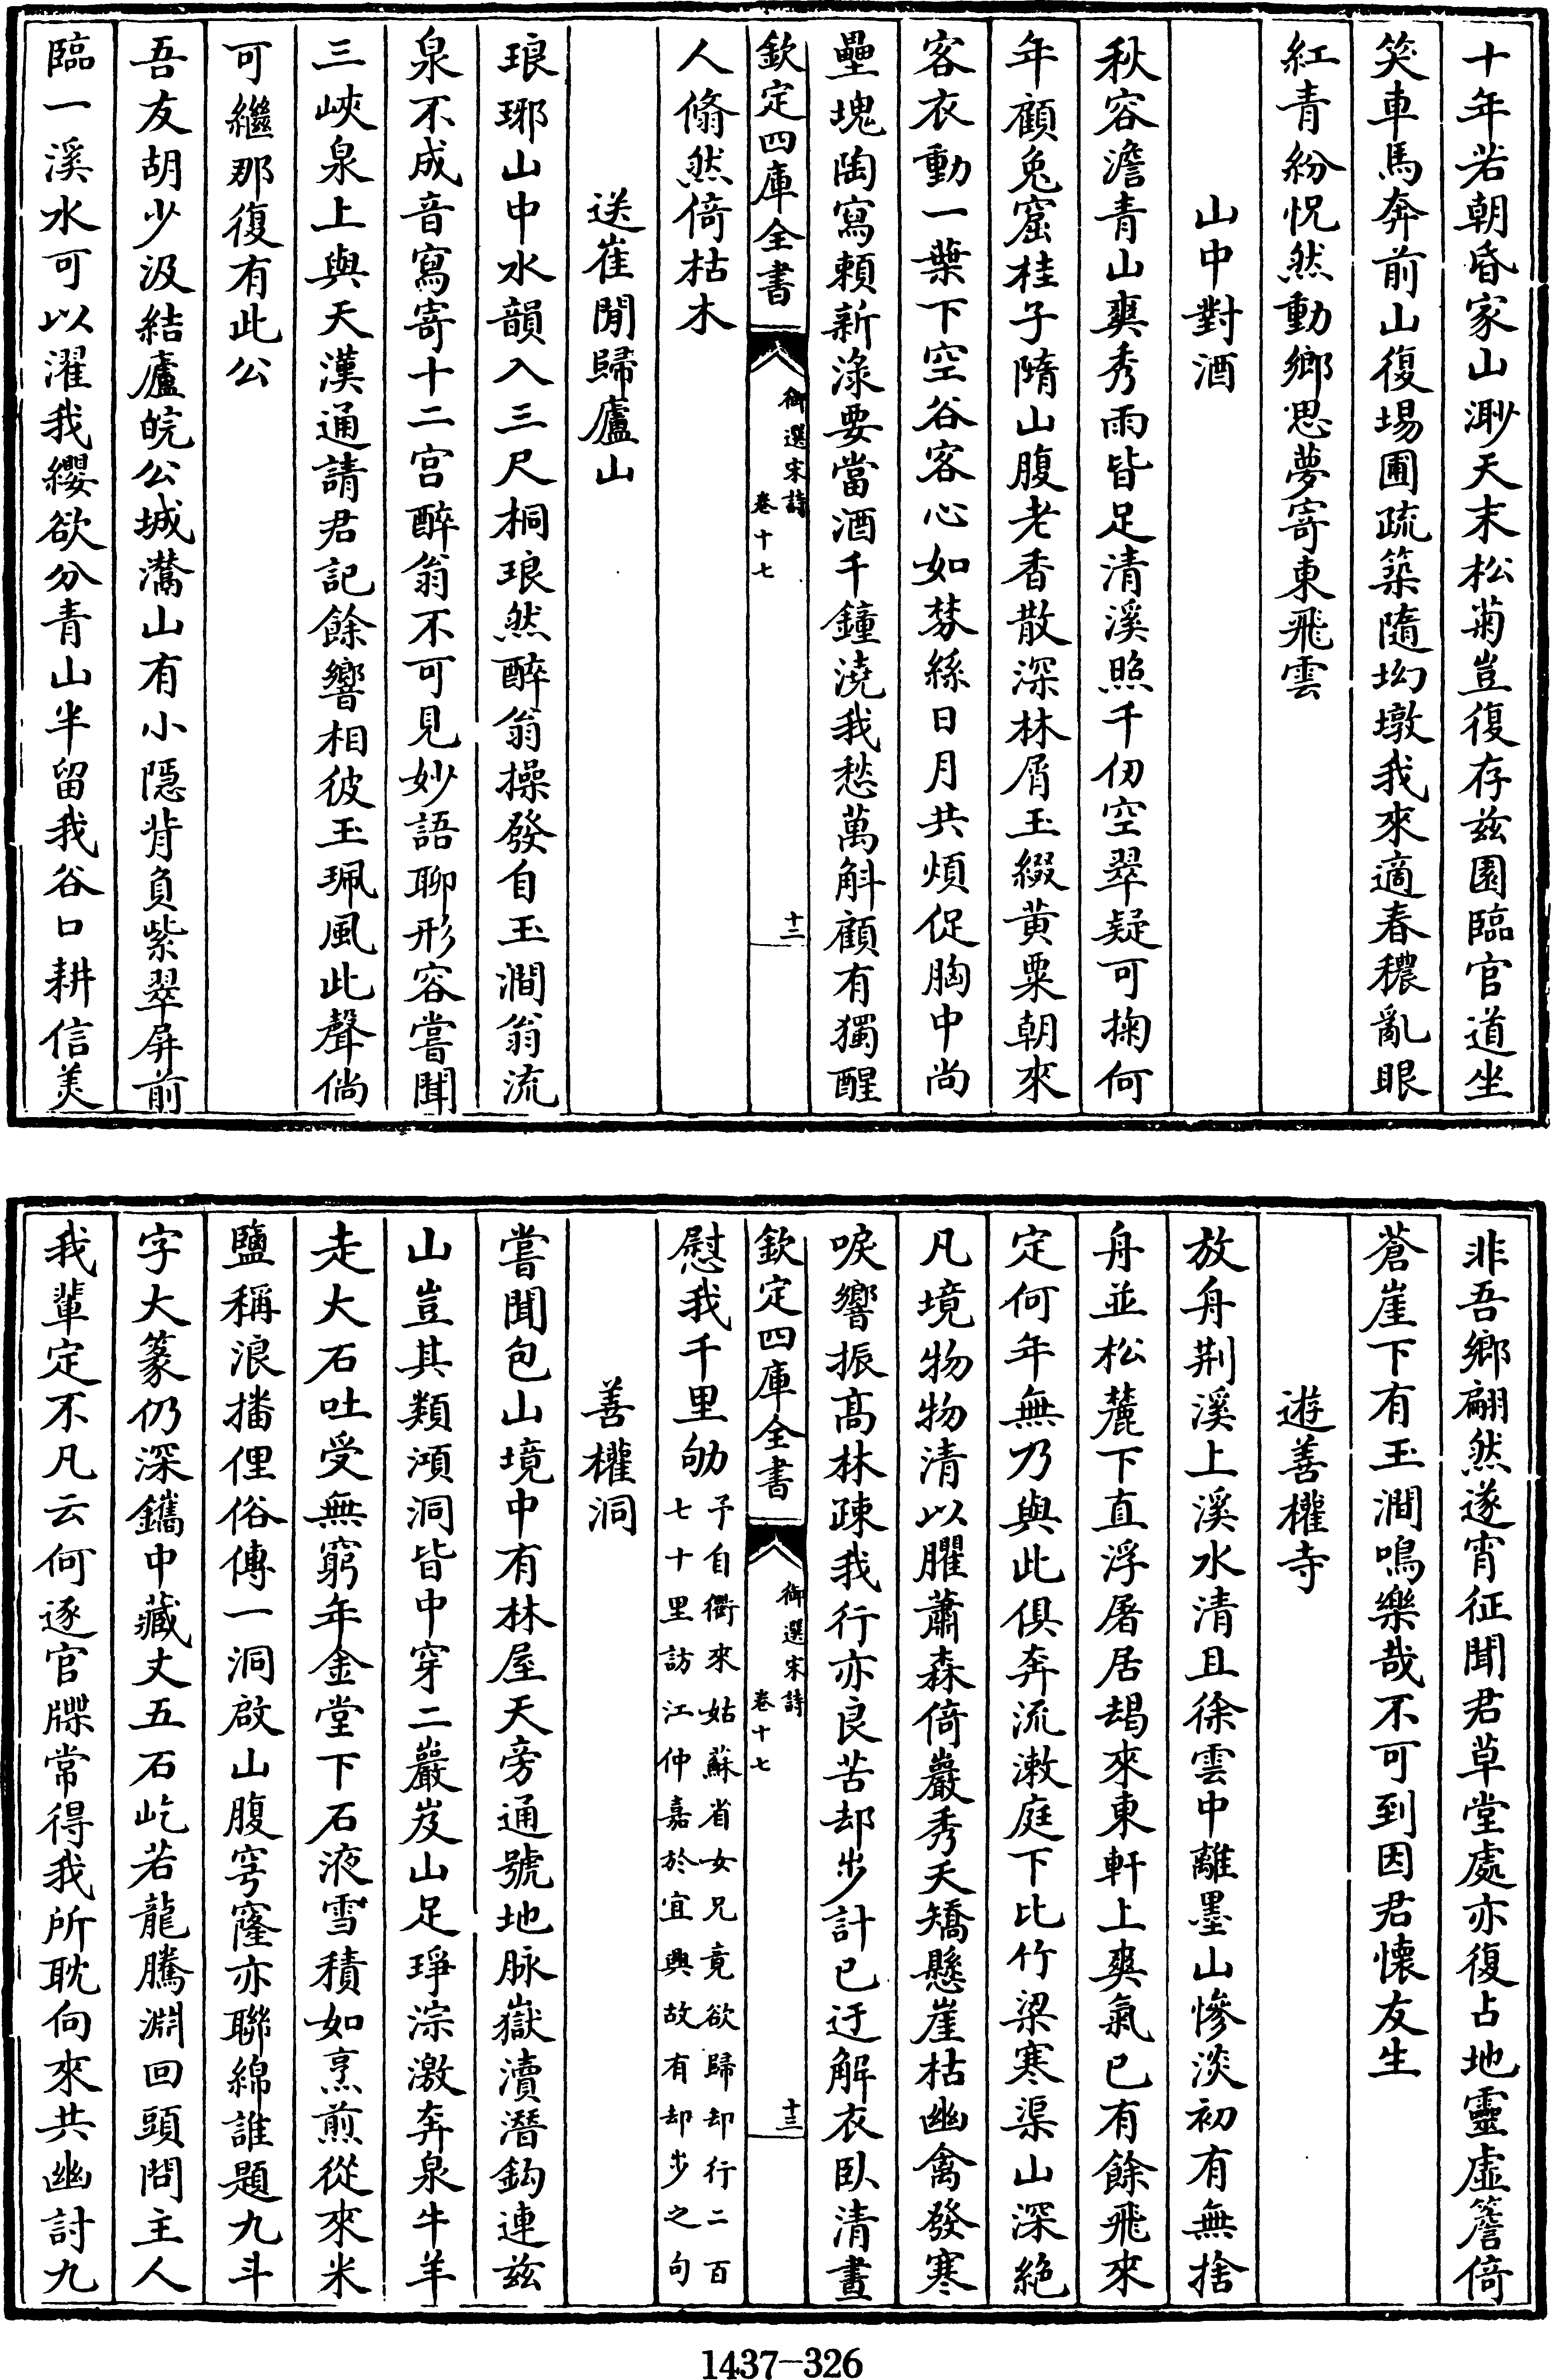 十年若朝昏家山渺天末松菊豈復存兹園臨官道坐
笑車馬奔前山復場圃疏築隨坳墩我來適春穠亂眼
紅青紛怳然動鄉思夢寄東飛雲
山中對酒
秋容澹青山爽秀雨皆足清溪照千仞空翠疑可掬何
年顧兔窟桂子隋山腹老香散深林屑玉綴黄粟朝來
客衣動一葉下空谷客心如棼絲日月共煩促胸中尚
壘塊陶寫頼新淥要當酒千鐘澆我愁萬斛顧有獨醒
欽定四庫全書
御選宋詩
卷十七
十二
人翛然倚枯木
送崔閒歸廬山
琅琊山中水韻入三尺桐琅然醉翁操發自玉澗翁流
泉不成音寫寄十二宫醉翁不可見妙語聊形容嘗聞
三峽泉上與天漢通請君記餘響相彼玉珮風此聲倘
可繼那復有此公
吾友胡少汲結廬皖公城灊山有小隠背負紫翠屏前
臨一溪水可以濯我纓欲分青山半留我谷口耕信美
非吾鄉翩然遂宵征聞君草堂處亦復占地靈虚簷倚
蒼崖下有玉澗鳴樂哉不可到因君懐友生
遊善權寺
放舟荆溪上溪水清且徐雲中離墨山慘淡初有無捨
舟並松麓下直浮屠居朅來東軒上爽氣已有餘飛來
定何年無乃與此俱奔流漱庭下比竹梁寒渠山深絶
凡境物物清以臞蕭森倚巖秀夭矯懸崖枯幽禽發寒
唳響振髙林疎我行亦良苦却步計已迂解衣卧清晝
欽定四庫全書
御選宋詩
卷十七
十三
慰我千里劬
予自衢來姑蘇省女兄竟欲歸却行二百
七十里訪江仲嘉於宜興故有却步之句
善權洞
嘗聞包山境中有林屋天旁通號地脉嶽瀆潛鈎連兹
山豈其類澒洞皆中穿二巖岌山足琤淙激奔泉牛羊
走大石吐受無窮年金堂下石液雪積如烹煎從來米
鹽稱浪播俚俗傳一洞啟山腹穹窿亦聯綿誰題九斗
字大篆仍深鐫中藏丈五石屹若龍騰淵回頭問主人
我輩定不凡云何逐官牒常得我所耽向來共幽討九
1437-326